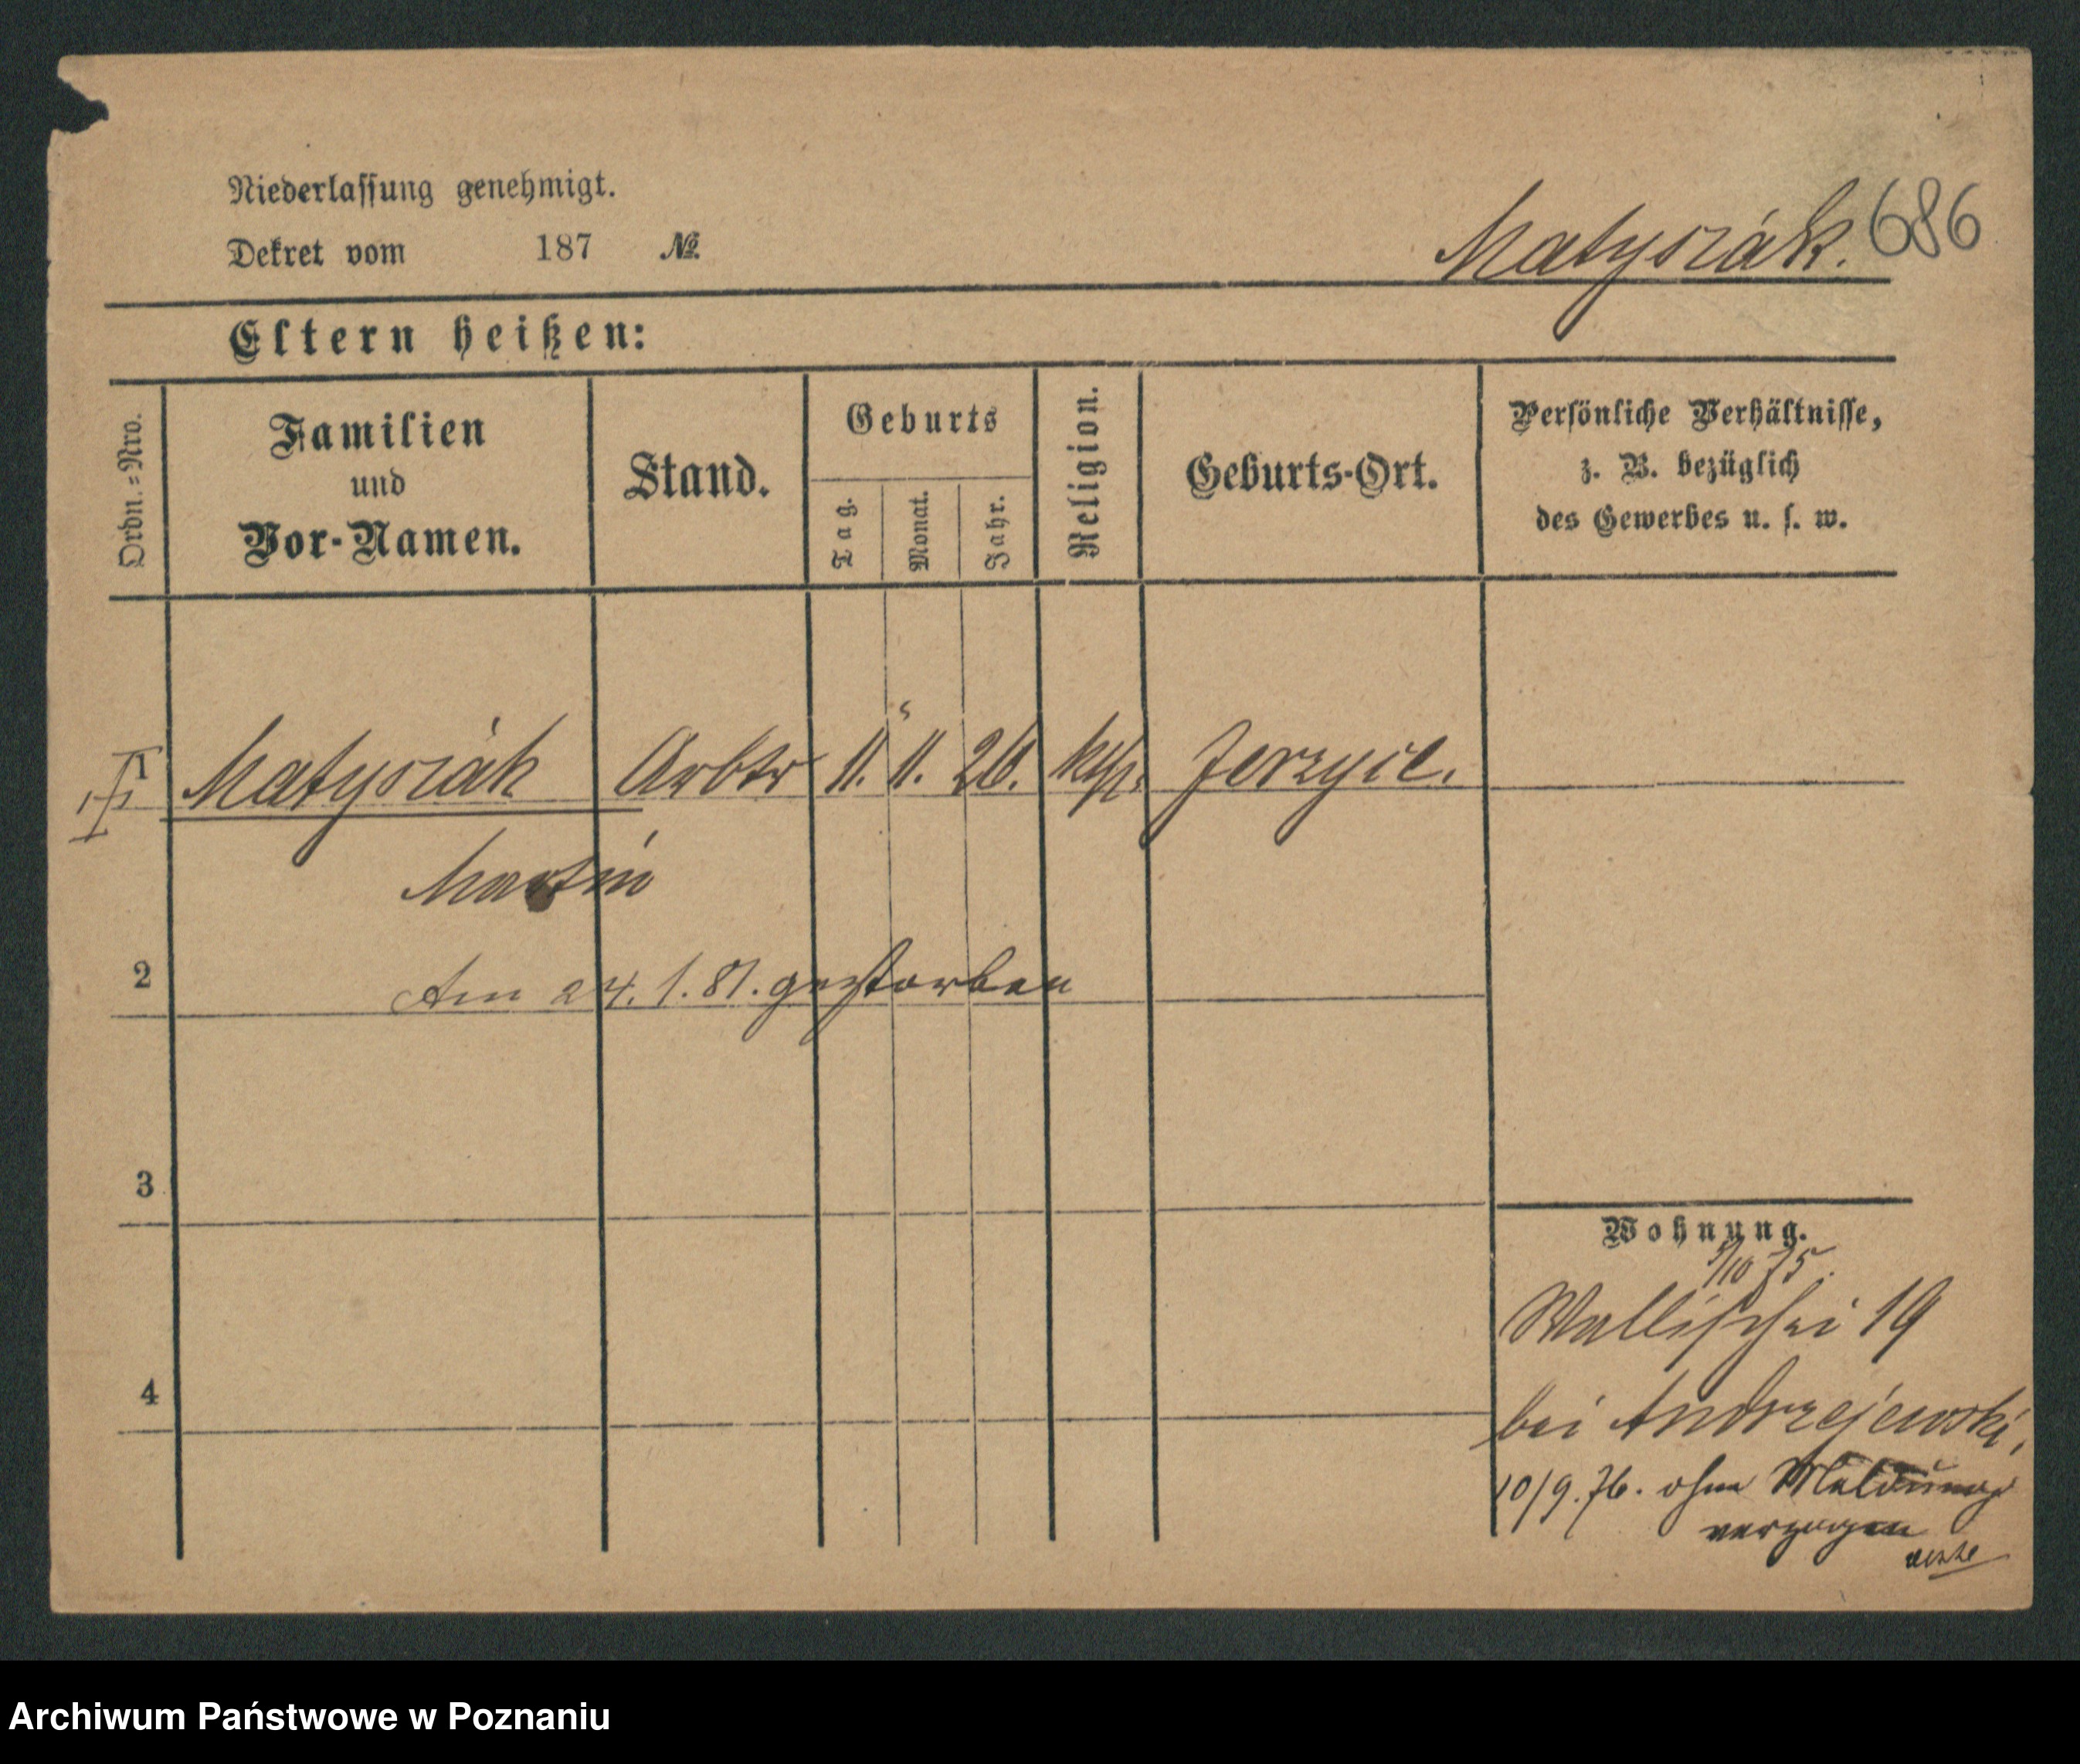 Niederlassung genehmigt.
Dekret vom 187 №
Matyszák. 686
Eltern heißen:
Ordn.=Nro.
Familien
und
Vor-Namen.
Stand.
Geburts
Tag.
Monat.
Jahr.
Religion.
Geburts-Ort.
Persönliche Verhältnisse,
z. B. bezüglich
des Gewerbes u. s. w.
1 Matyszák Arbtr 11. 11. 26. kth. Jerzyce.
Martin
2 Am 24. 1. 81. gestorben
3
Wohnung.
/10 75.
Wallischei 19
4
bei Andrzejewski,
10/9. 76. ohne Meldung
verzogen